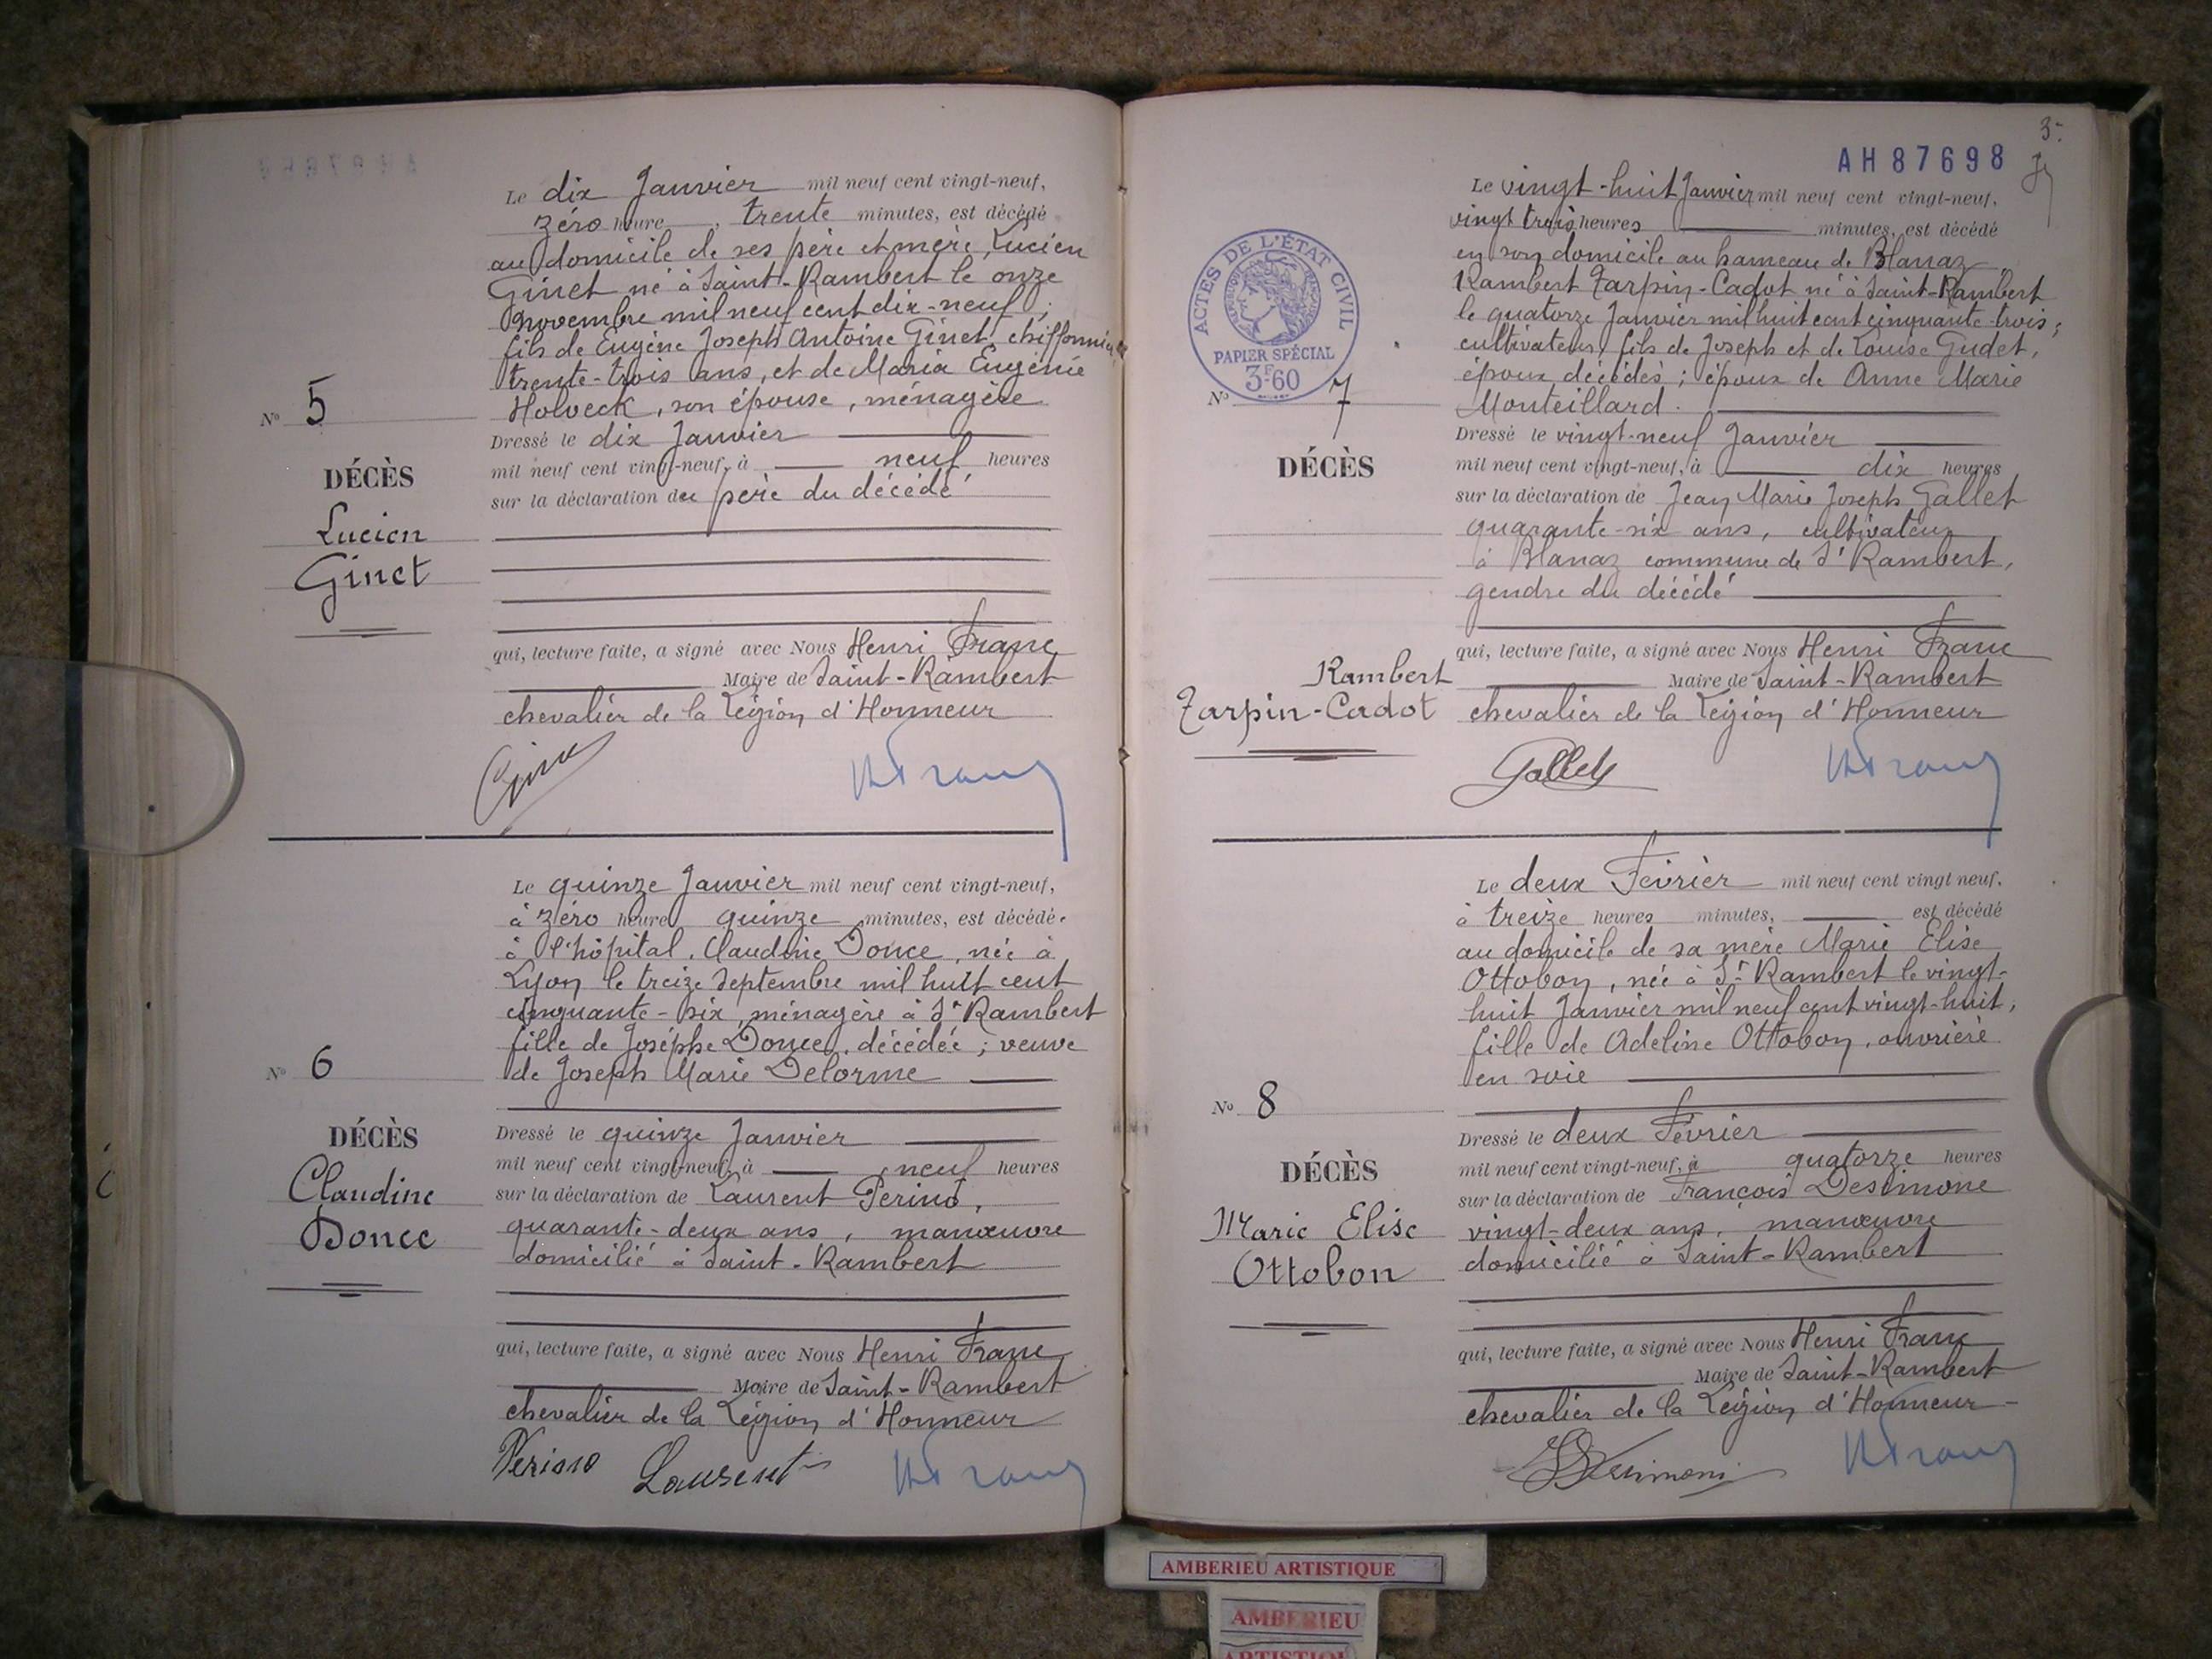 Le dix Janvier mil neuf cent vingt-neuf,
zéro heure, trente minutes, est décédé
au domicile de ses père et mère, Lucien
Ginet né à Saint-Rambert le onze
novembre mil neuf cent dix-neuf ;
fils de Eugène Joseph Antoine Ginet, chiffonnier
trente-trois ans, et de Maria Eugénie
Holveck, son épouse, ménagère
Nº 5
DÉCÈS
Lucien
Ginet
Dressé le dix Janvier
mil neuf cent vingt-neuf, à neuf heures
sur la déclaration du père du décédé
qui, lecture faite, a signé avec Nous Henri Franc
Maire de Saint-Rambert
chevalier de la Légion d'Honneur
Ginet
HFranc
Le quinze Janvier mil neuf cent vingt-neuf,
à zéro heure quinze minutes, est décédée
à l'hôpital, Claudine Donce, née à
Lyon le treize Septembre mil huit cent
cinquante-six, ménagère à St Rambert
fille de Josephe Donce, décédée ; veuve
de Joseph Marie Delorme
Nº 6
DÉCÈS
Claudine
Donce
Dressé le quinze Janvier
mil neuf cent vingt-neuf, à neuf heures
sur la déclaration de Laurent Perino,
quarante-deux ans, manœuvre
domicilié à Saint-Rambert
qui, lecture faite, a signé avec Nous Henri Franc
Maire de Saint-Rambert
chevalier de la Légion d'Honneur
Perino Laurent
HFranc
3
AH87698
ACTES DE L'ÉTAT CIVIL
PAPIER SPÉCIAL
3F60
Le vingt-huit Janvier mil neuf cent vingt-neuf,
vingt trois heures minutes, est décédé
en son domicile au hameau de Blanaz
Rambert Tarpin-Cadot né à Saint-Rambert
le quatorze Janvier mil huit cent cinquante-trois ;
cultivateur, fils de Joseph et de Louise Gudet,
époux décédés ; époux de Anne Marie
Monteillard.
Nº 7
DÉCÈS
Rambert
Tarpin-Cadot
Dressé le vingt-neuf Janvier
mil neuf cent vingt-neuf, à dix heures
sur la déclaration de Jean Marie Joseph Gallet
quarante-six ans, cultivateur
à Blanaz commune de St Rambert,
gendre du décédé
qui, lecture faite, a signé avec Nous Henri Franc
Maire de Saint-Rambert
chevalier de la Légion d'Honneur
Gallet
HFranc
Le deux Février mil neuf cent vingt neuf,
à treize heures minutes, est décédé
au domicile de sa mère Marie Elise
Ottobon, née à St Rambert le vingt-
huit Janvier mil neuf cent vingt-huit,
fille de Adeline Ottobon, ouvrière
en soie
Nº 8
DÉCÈS
Marie Elise
Ottobon
Dressé le deux Février
mil neuf cent vingt-neuf, à quatorze heures
sur la déclaration de François Desimone
vingt-deux ans, manœuvre
domicilié à Saint-Rambert
qui, lecture faite, a signé avec Nous Henri Franc
Maire de Saint-Rambert
chevalier de la Légion d'Honneur
HFranc
AMBERIEU ARTISTIQUE
AMBERIEU
ARTISTIQUE